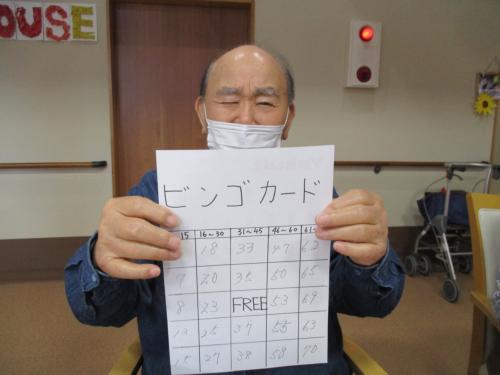 OUSE
ビンゴカード
15 16~30 31~45 46~60 61~
18 33 47 62
7 20 35 50 65
8 23 FREE 53 69
25 37 55 63
15 27 38 58 70